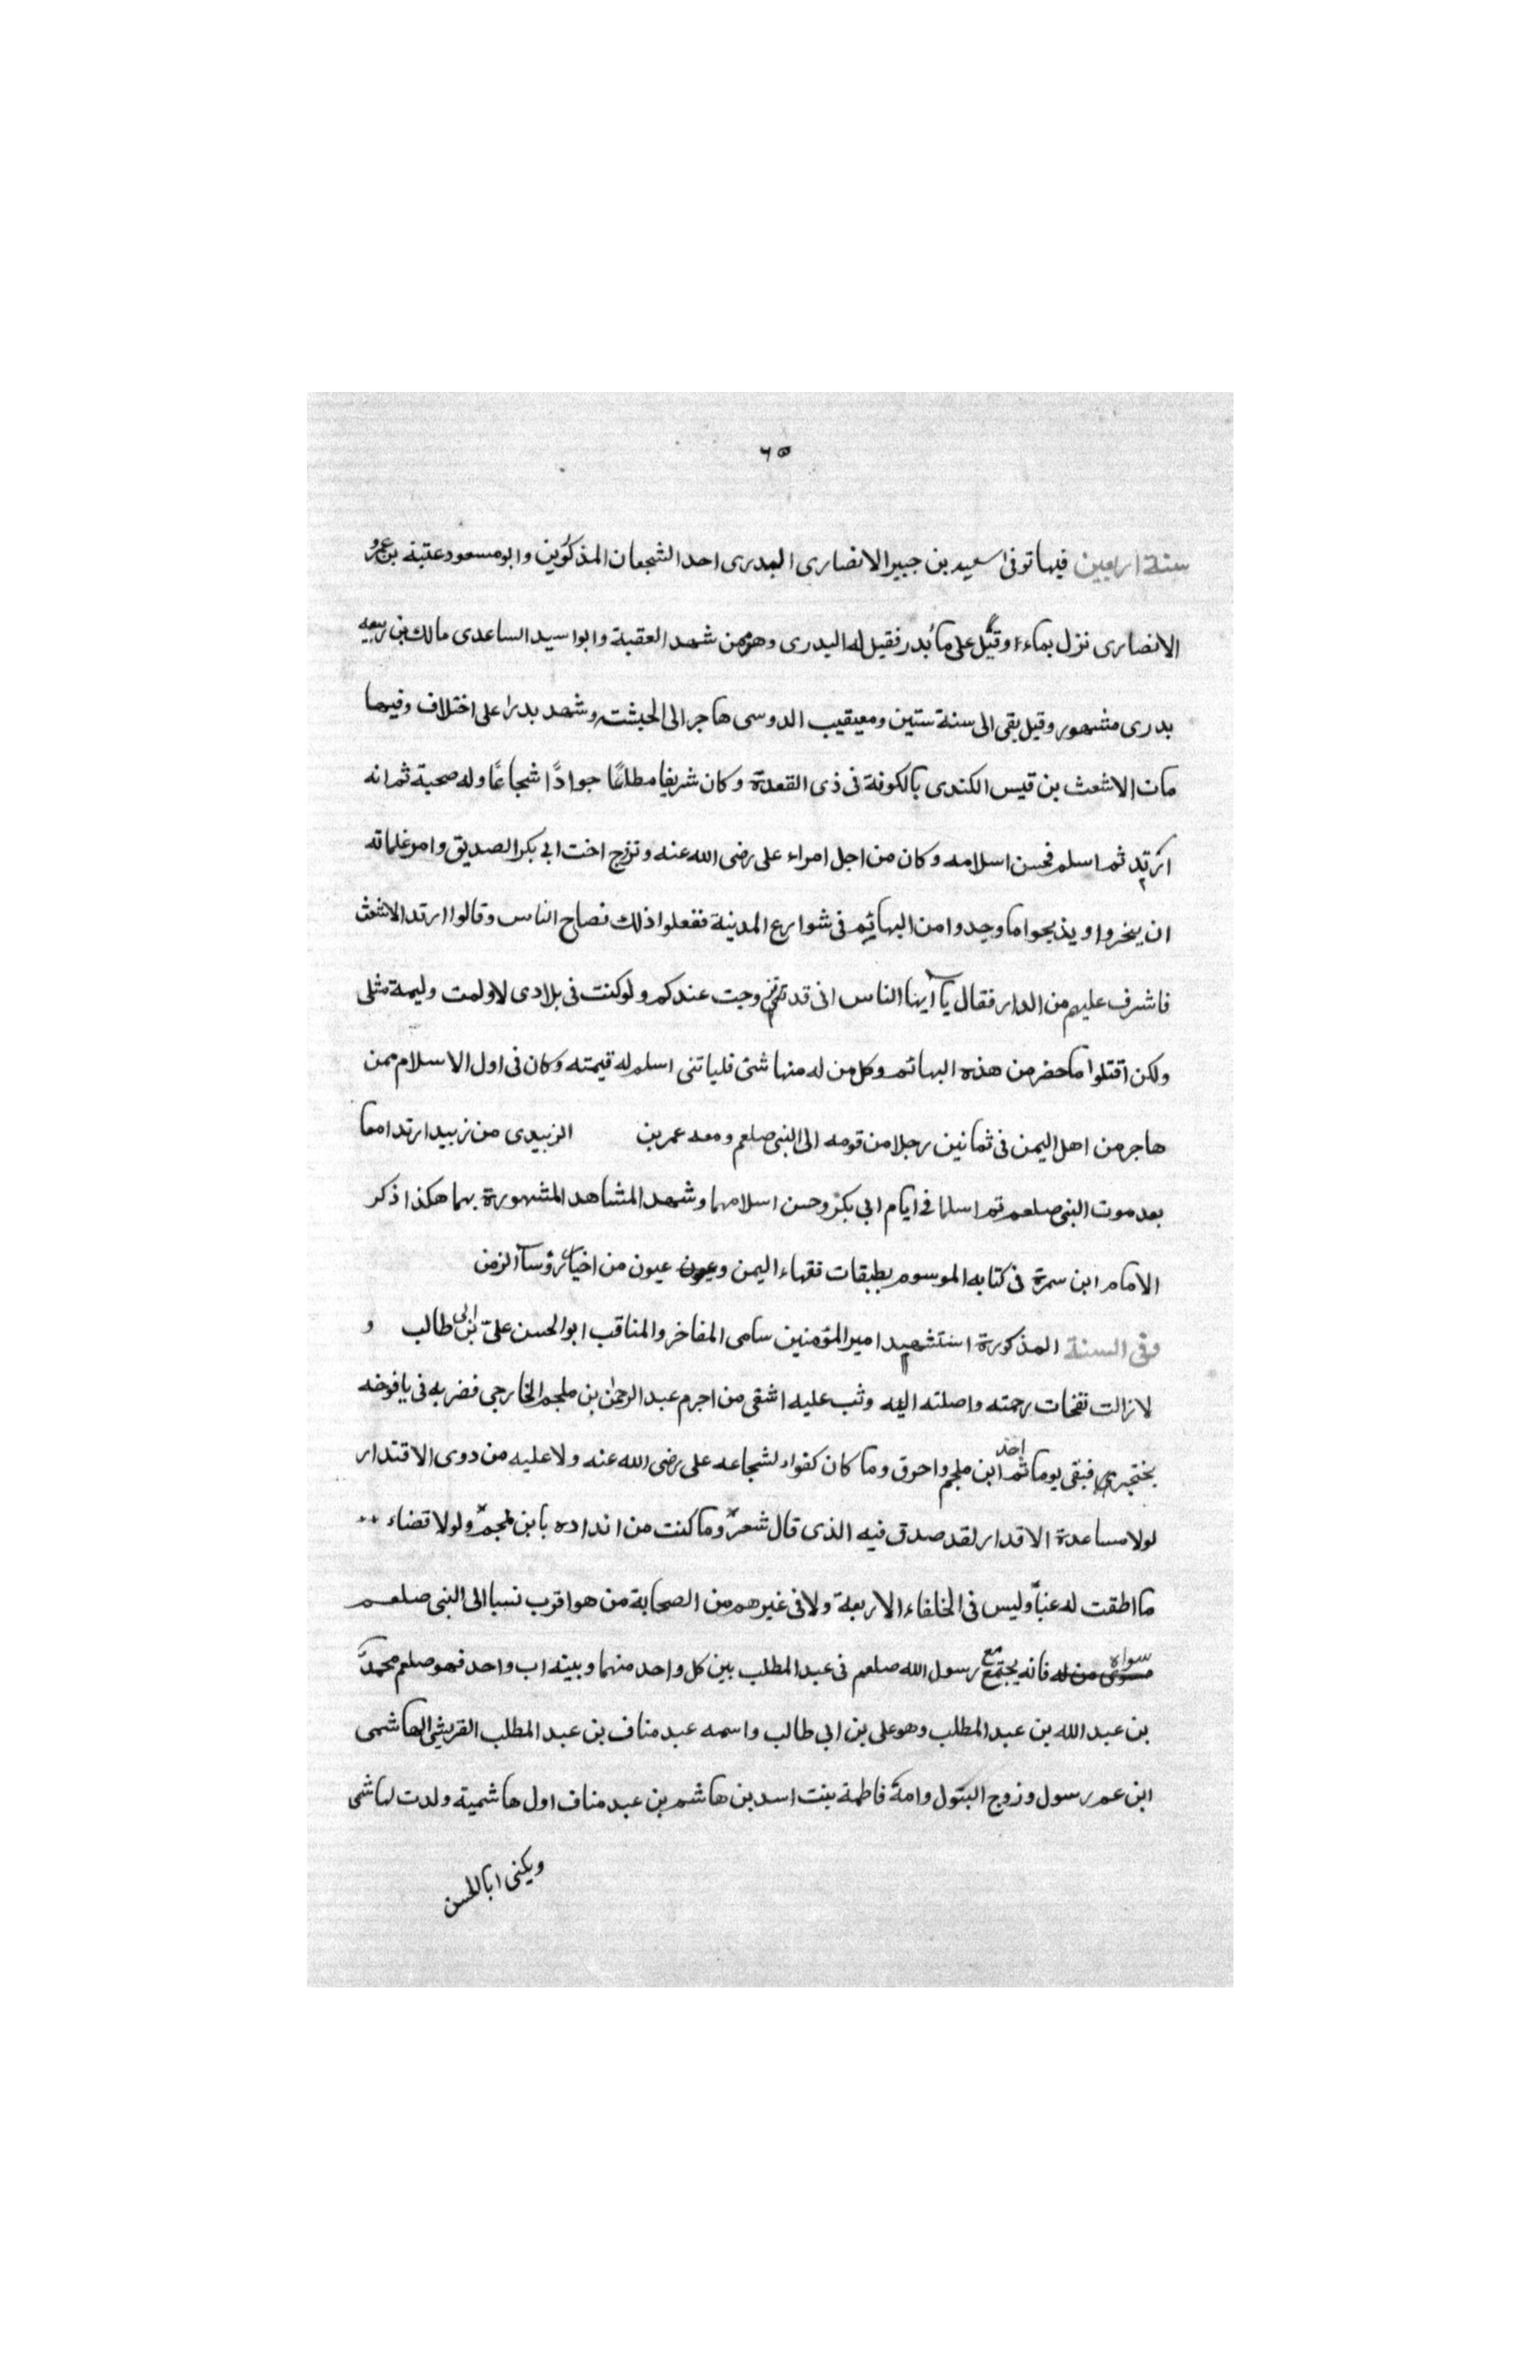 ٦٥
سنة اربعين فيها توفى سعيد بن جبير الانصارى البدرى احد الشجعان المذكوين وابو مسعود عتبة بن عمرو
الانصارى نزل بماء اوقيل على ماء بدر فقيل له البدرى وهو من شهد العقبة وابو اسيد الساعدى مالك بن ربيعه
بدرى مشهور وقيل بقى الى سنة ستين ومعيقيب الدوسى هاجر الى الحبشة وشهد بدرا على اختلاف وفيها
مات الاشعث بن قيس الكندى بالكوفة فى ذى القعدة وكان شريفا مطاعًا جوادًا شجاعًا وله صحبة ثم انه
ارتد ثم اسلم فحسن اسلامه وكان من اجل امراء على رضى الله عنه وتزوج اخت ابى بكر الصديق وامر غلمانه
ان ينحروا ويذبحوا ما وجدوا من البهائم فى شوارع المدينة ففعلوا ذلك فصاح الناس وقالوا ارتد الاشعث
فاشرف عليهم من الدار فقال يا ايها الناس انى قد تزوجت عندكم ولو كنت فى بلادى لاولمت وليمة مثلى
ولكن اقتلوا ما حضر من هذه البهائم وكل من له منها شئ فلياتنى اسلم له قيمته وكان فى اول الاسلام ممن
هاجر من اهل اليمن فى ثمانين رجلا من قومه الى النبى صلعم ومعه عمر بن الزبيدى من زبيد ارتدا معا
بعد موت النبى صلعم ثم اسلما فى ايام ابى بكر وحسن اسلامهما وشهد المشاهد المشهورة بهما هكذا ذكر
الامام ابن سمرة فى كتابه الموسوم بطبقات فقهاء اليمن وعيون عيون من اخيار رؤسآ الزمن
وفى السنة المذكورة استشهد امير المؤمنين سامى المفاخر والمناقب ابو الحسن علىّ بن ابى طالب و
لازالت نفحات رحمته واصلته اليه وثب عليه اشقى من اجرم عبد الرحمن بن ملجم الخارجى فضربه فى يافوخه
بخنجر فبقى يوما ثم اخذ ابن ملجم واحرق وما كان كفوا لشجاعه على رضى الله عنه ولا عليه من دوى الاقتدار
لولا مساعدة الاقدار لقد صدق فيه الذى قال شعر وما كنت من انداده يا بن ملجم ولولا قضاء
ما اطقت له عنبا وليس فى الخلفاء الاربعة ولا فى غيرهم من الصحابة من هو اقرب نسبا الى النبى صلعم
سواه فانه يجتمع مع رسول الله صلعم فى عبد المطلب بين كل واحد منهما وبينه اب واحد فهو صلعم محمد
بن عبد الله بن عبد المطلب وهو على بن ابى طالب واسمه عبد مناف بن عبد المطلب القريشى الهاشمى
ابن عم رسول وزوج البتول وامة فاطمة بنت اسد بن هاشم بن عبد مناف اول هاشمية ولدت لهاشمى
ويكنى ابا الحسن